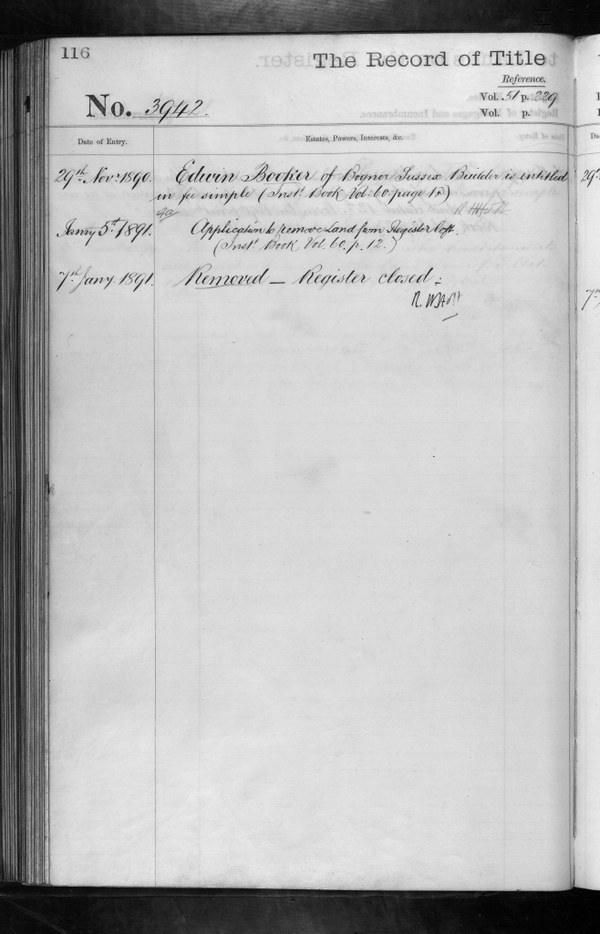 116
The Record of Title
Reference.
Vol. 51 p. 229
Vol. p.
No. 3942.
Date of Entry.
Estates, Powers, Interests, &c.
29th Novr 1890. Edwin Booker of Bognor Sussex Builder is entitled
in fee simple (Inst. Book Vol: 60. page 12)
Janry 5th 1891. Application to remove Land from Register Off.
(Inst. Book, Vol. 60. p. 12.)
7th Jany. 1891. Removed — Register closed: